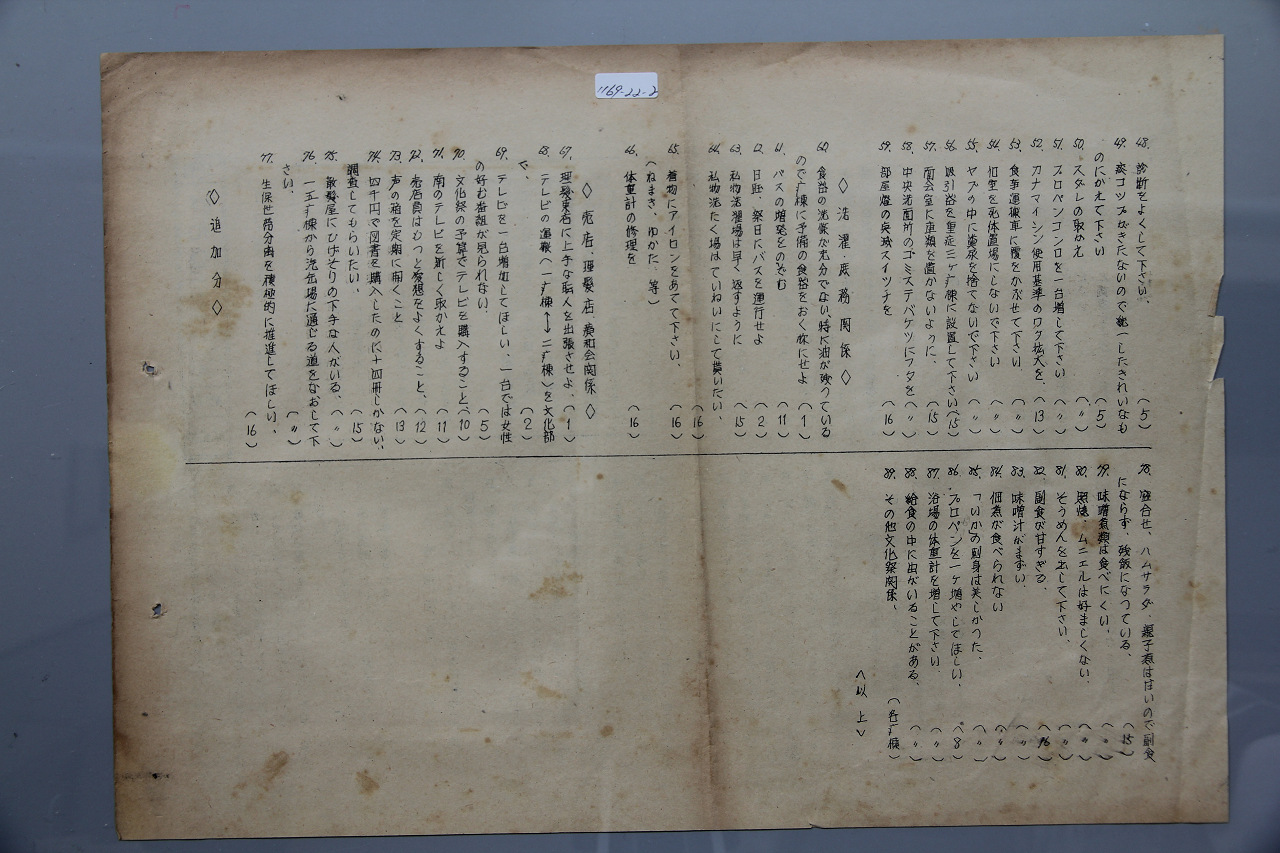 1169-22-2
48. 診断をよくして下さい、 (5)
49. 痰コップがきたないので統一したきれいなも
のにかえて下さい (5)
50. スダレの取かえ (〃)
51. プロペンコンロを一台増して下さい (〃)
52. カナマイシン使用基準のワク拡大を、 (13)
53. 食事運搬車に覆をかぶせて下さい (〃)
54. 個室を死体置場にしないで下さい (〃)
55. ヤブの中に糞尿を捨てないで下さい (〃)
56. 吸引器を重症三ヶ疒棟に設置して下さい (15)
57. 面会室に床類を置かないように、 (15)
58. 中央洗面所のゴミステバケツにフタを (〃)
59. 部屋燈の点滅スイッチを (16)
◇ 洗濯・庶務関係 ◇
60. 食器の洗滌が充分でない、特に油が残っている
ので疒棟に予備の食器をおく様にせよ (1)
61. バスの増発をのぞむ (11)
62. 日曜、祭日にバスを運行せよ (2)
63. 私物洗濯場は早く返すように (15)
64. 私物洗たく場はていねいにして貰いたい、
(16)
65. 着物にアイロンをあてて下さい、 (16)
(ねまき、ゆかた、等)
66. 体重計の修理を (16)
◇ 売店、理髪店、養和会関係 ◇
67. 理髪東店に上手な職人を出張させよ、 (1)
68. テレビの運搬へ一疒棟↔二疒棟〉を文化部
で、 (2)
69. テレビを一台増加してほしい、一台では女性
の好む番組が見られない、 (5)
70. 文化祭の予算でテレビを購入すること、 (10)
71. 南のテレビを新しく取かえよ (11)
72. 売店員はもっと愛想をよくすること、 (12)
73. 声の箱を定期に開くこと (13)
74. 四千円で図書を購入したのに十四冊しかない、
調査してもらいたい、 (15)
75. 散髪屋にひげそりの下手な人がいる、 (〃)
76. 一五疒棟から洗缶場に通じる道をなおして下
さい、 (〃)
77. 生保世帯分离を積極的に推進してほしい、
(16)
◇ 追加分 ◇
78. 盛合せ、ハムサラダ、親子煮は甘いので副食
にならず、残飯になっている、 (15)
79. 味噌煮類は食べにくい、 (〃)
80. 照焼、ムニエルは好ましくない、 (〃)
81. そうめんを出して下さい、 (〃)
82. 副食が甘すぎる、 (16)
83. 味噌汁がまずい、 (〃)
84. 佃煮が食べられない (〃)
85. 「いか」の刺身は美しかった、 (〃)
86. プロペンを一ヶ増やしてほしい、 (8)
87. 浴場の体重計を増して下さい、 (〃)
88. 給食の中に虫がいることがある、 (〃)
89. その他文化祭関係、 (各疒棟)
〈以上〉